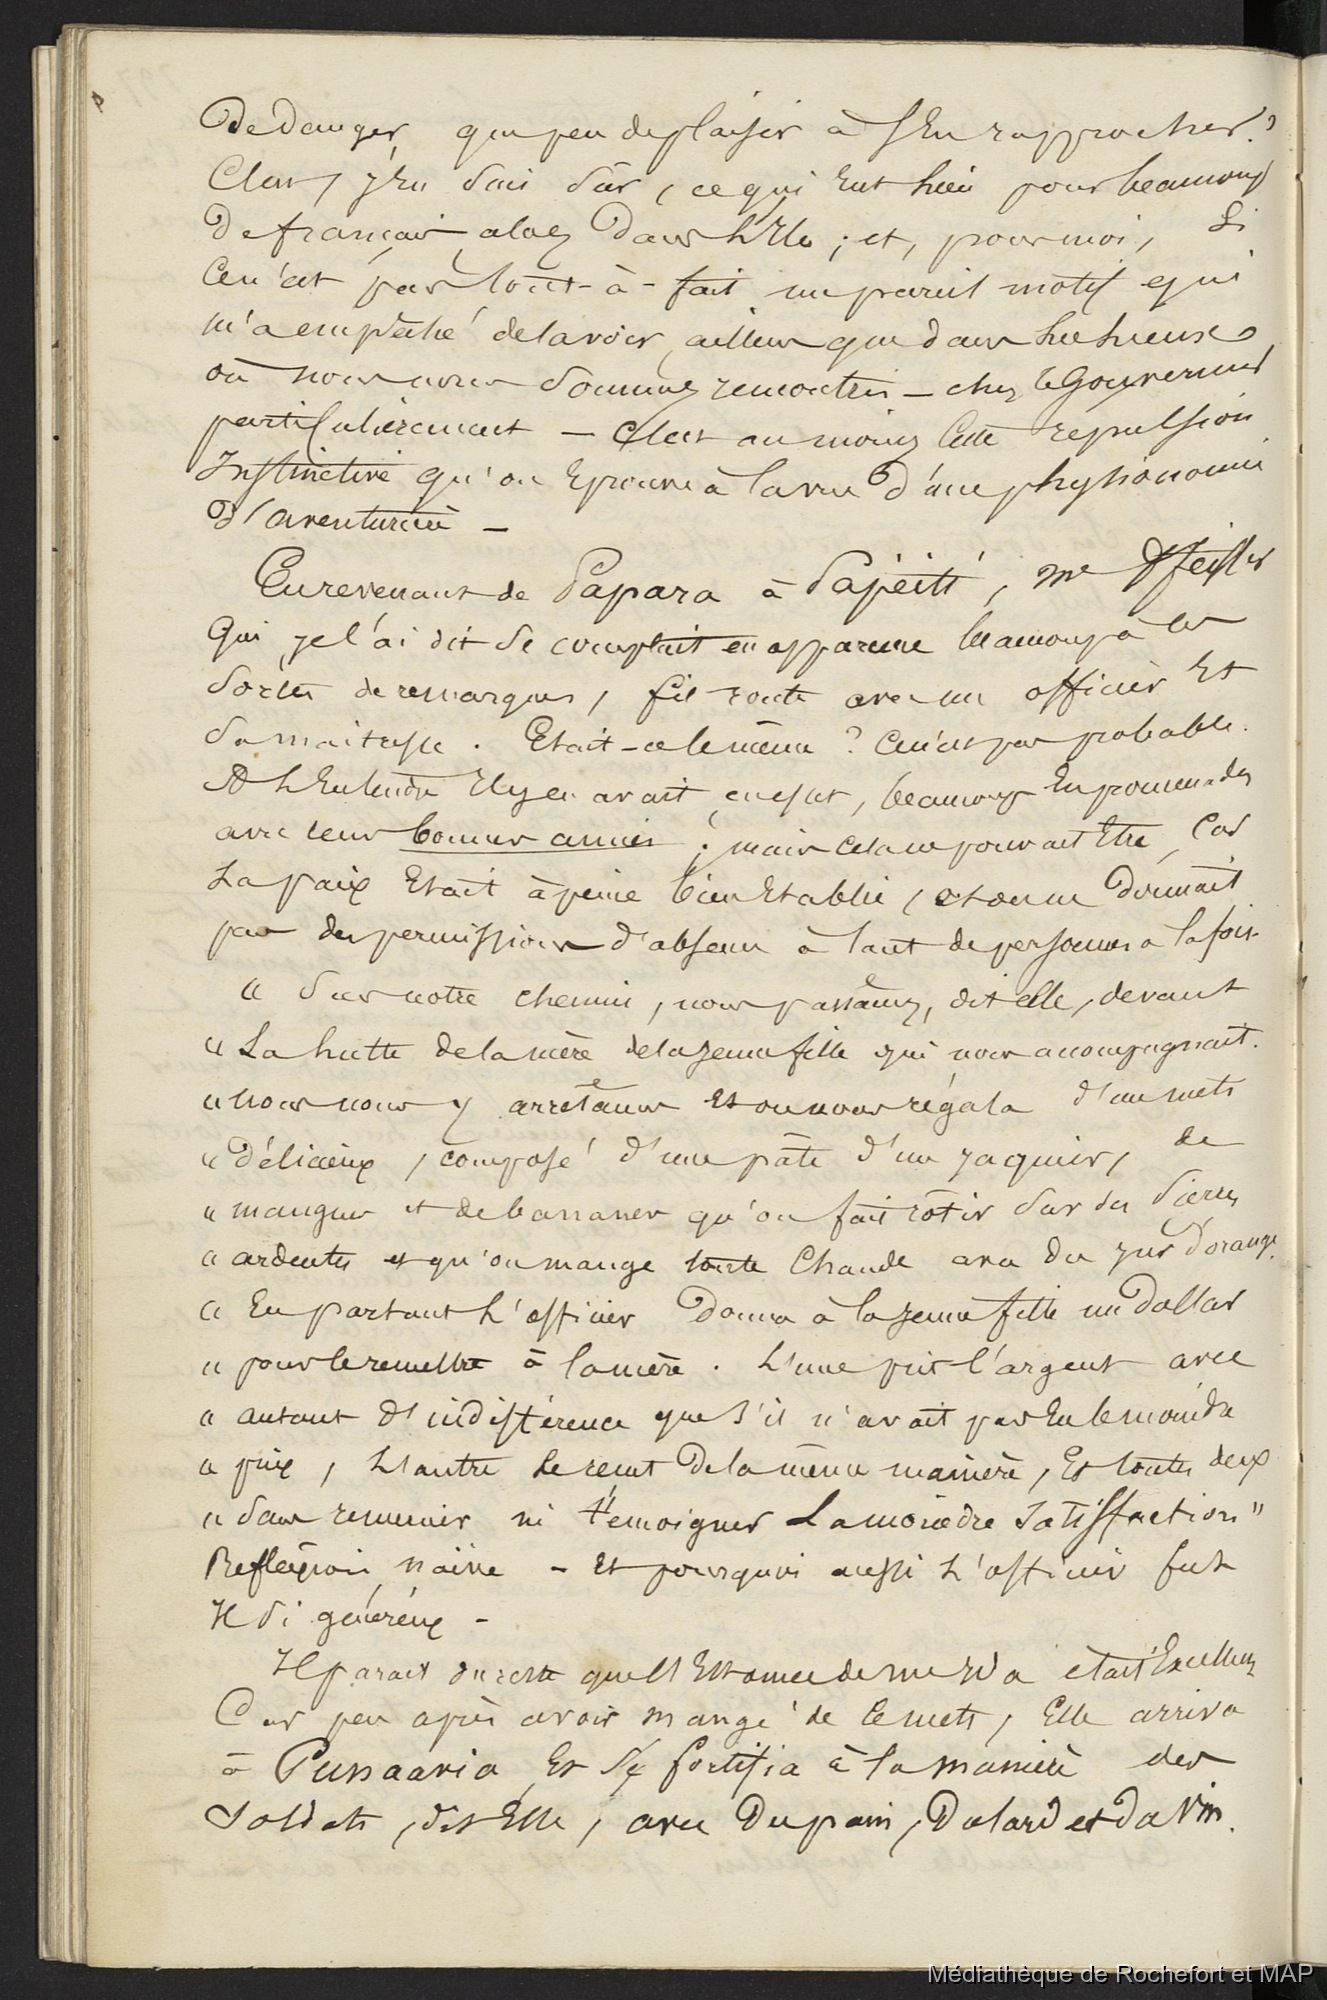 de danger, que peu de plaisir à s'en rapprocher.
C'est, j'en suis sûr, ce qui eut lieu pour beaucoup
de français alors dans l'Ile ; et, pour moi, si
ce n'est pas tout-à-fait un pareil motif qui
m'a empêché de la voir ailleurs que dans les lieux
où nous nous sommes rencontrés — chez le Gouverneur
particulièrement — C'est au moins cette répulsion
Instinctive qu'on Eprouve à la vue d'une physionomie
d'aventurière —
En revenant de Papara à Papeiti, Me Pfeiffer
qui, je l'ai dit se complait en apparence beaucoup à ces
sortes de remarques, fit route avec un officier Et
sa maitresse. Etait-ce le même ? Ce n'est pas probable.
A l'Entendre Il y en avait, en effet, beaucoup En promenades
avec leurs bonnes amies ; mais cela ne pouvait Etre, Car
La paix Etait à peine bien Etablie, et on ne donnait
pas des permissions d'absence à tant de personnes à la fois.
" Sur notre chemin, nous passâmes, dit elle, devant
" La hutte de la mère de la jeune fille qui nous accompagnait.
" nous nous y arretâmes Et on nous régala d'un mets
" délicieux, composé d'une pâte d'un jaquier, de
" mangues et de bananes qu'on fait rôtir sur des Pierres
" ardentes et qu'on mange toute Chaude avec du jus d'orange.
" En partant L'officier donna à la jeune fille un Dollar
" pour le remettre à la mère. L'une prit l'argent avec
" autant d'indifférence que s'il n'avait pas Eu le moindre
" prix, L'autre Le reçut de la même manière, Et toutes deux
" sans remercier ni témoigner La moindre Satisfaction "
Réflexion naïve — Et pourquoi aussi L'officier fut
Il si généreux —
Il parait du reste que l'Estomac de me était Excellent
Car peu après avoir mangé de ce mets, Elle arriva
à Punaavia Et s'y fortifia à la manière des
Soldats, dit Elle, avec du pain, du lard et du vin.
Médiathèque de Rochefort et MAP